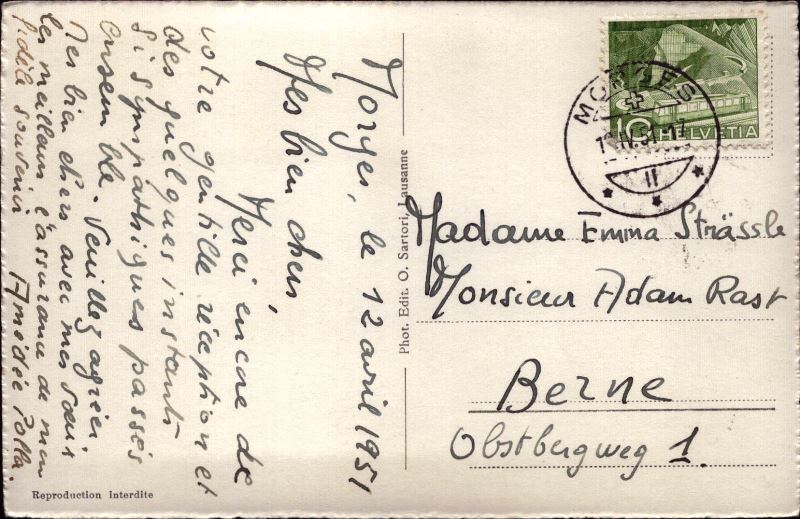 Morges, le 12 avril 1951
Mes bien chers,
Merci encore de
votre gentille réception et
des quelques instants
si sympathiques passés
ensemble. Veuillez agréer
Mes bien chers avec mes sœurs
les meilleurs l'assurance de mon
fidèle souvenir Amédée
Reproduction Interdite
Phot. Edit. O. Sartori, Lausanne
MORGES
51-17
10 HELVETIA
Madame Emma Strässle
Monsieur Adam Rast
Berne
Obstbergweg 1.